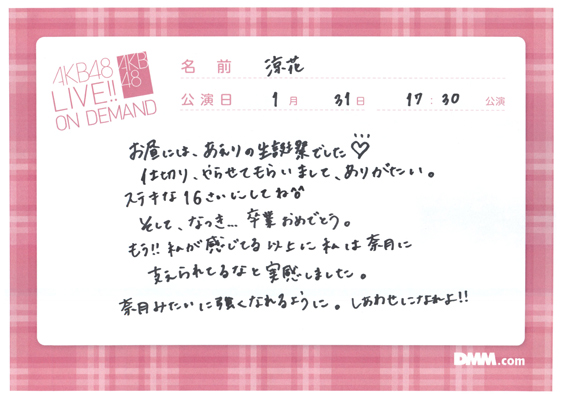 AKB48
LIVE!!
ON DEMAND
AKB
48
名前 涼花
公演日 1月 31日 17:30 公演
お昼には、あえりの生誕祭でした♡
仕切り、やらせてもらいまして、ありがたい。
ステキな16さいにしてね
そして、なつき…卒業おめでとう。
もう!!私が感じてる以上に私は奈月に
支えられてるなと実感しました。
奈月みたいに強くなれるように。しあわせになれよ!!
DMM.com